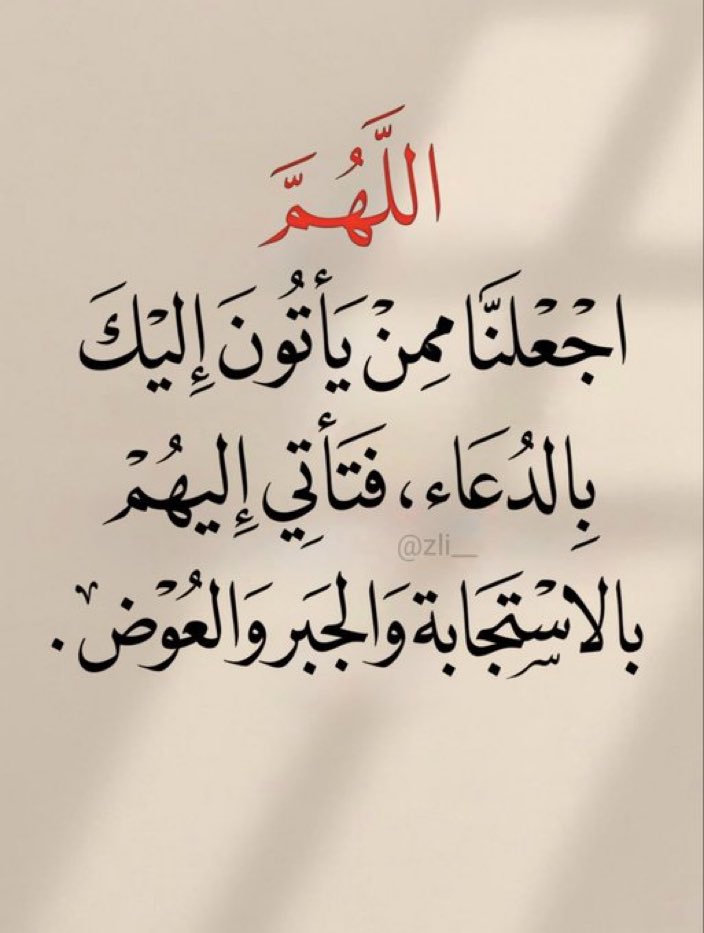 اللَّهُمَّ
اجْعَلنَّا مِمِنْ يَأتُونَ إِليْكَ
بِالدُعَاء، فَتَأتِي إِليهُمْ
@zli__
بالاسْتِجَابة وَالجَبَر وَالعُوْض.